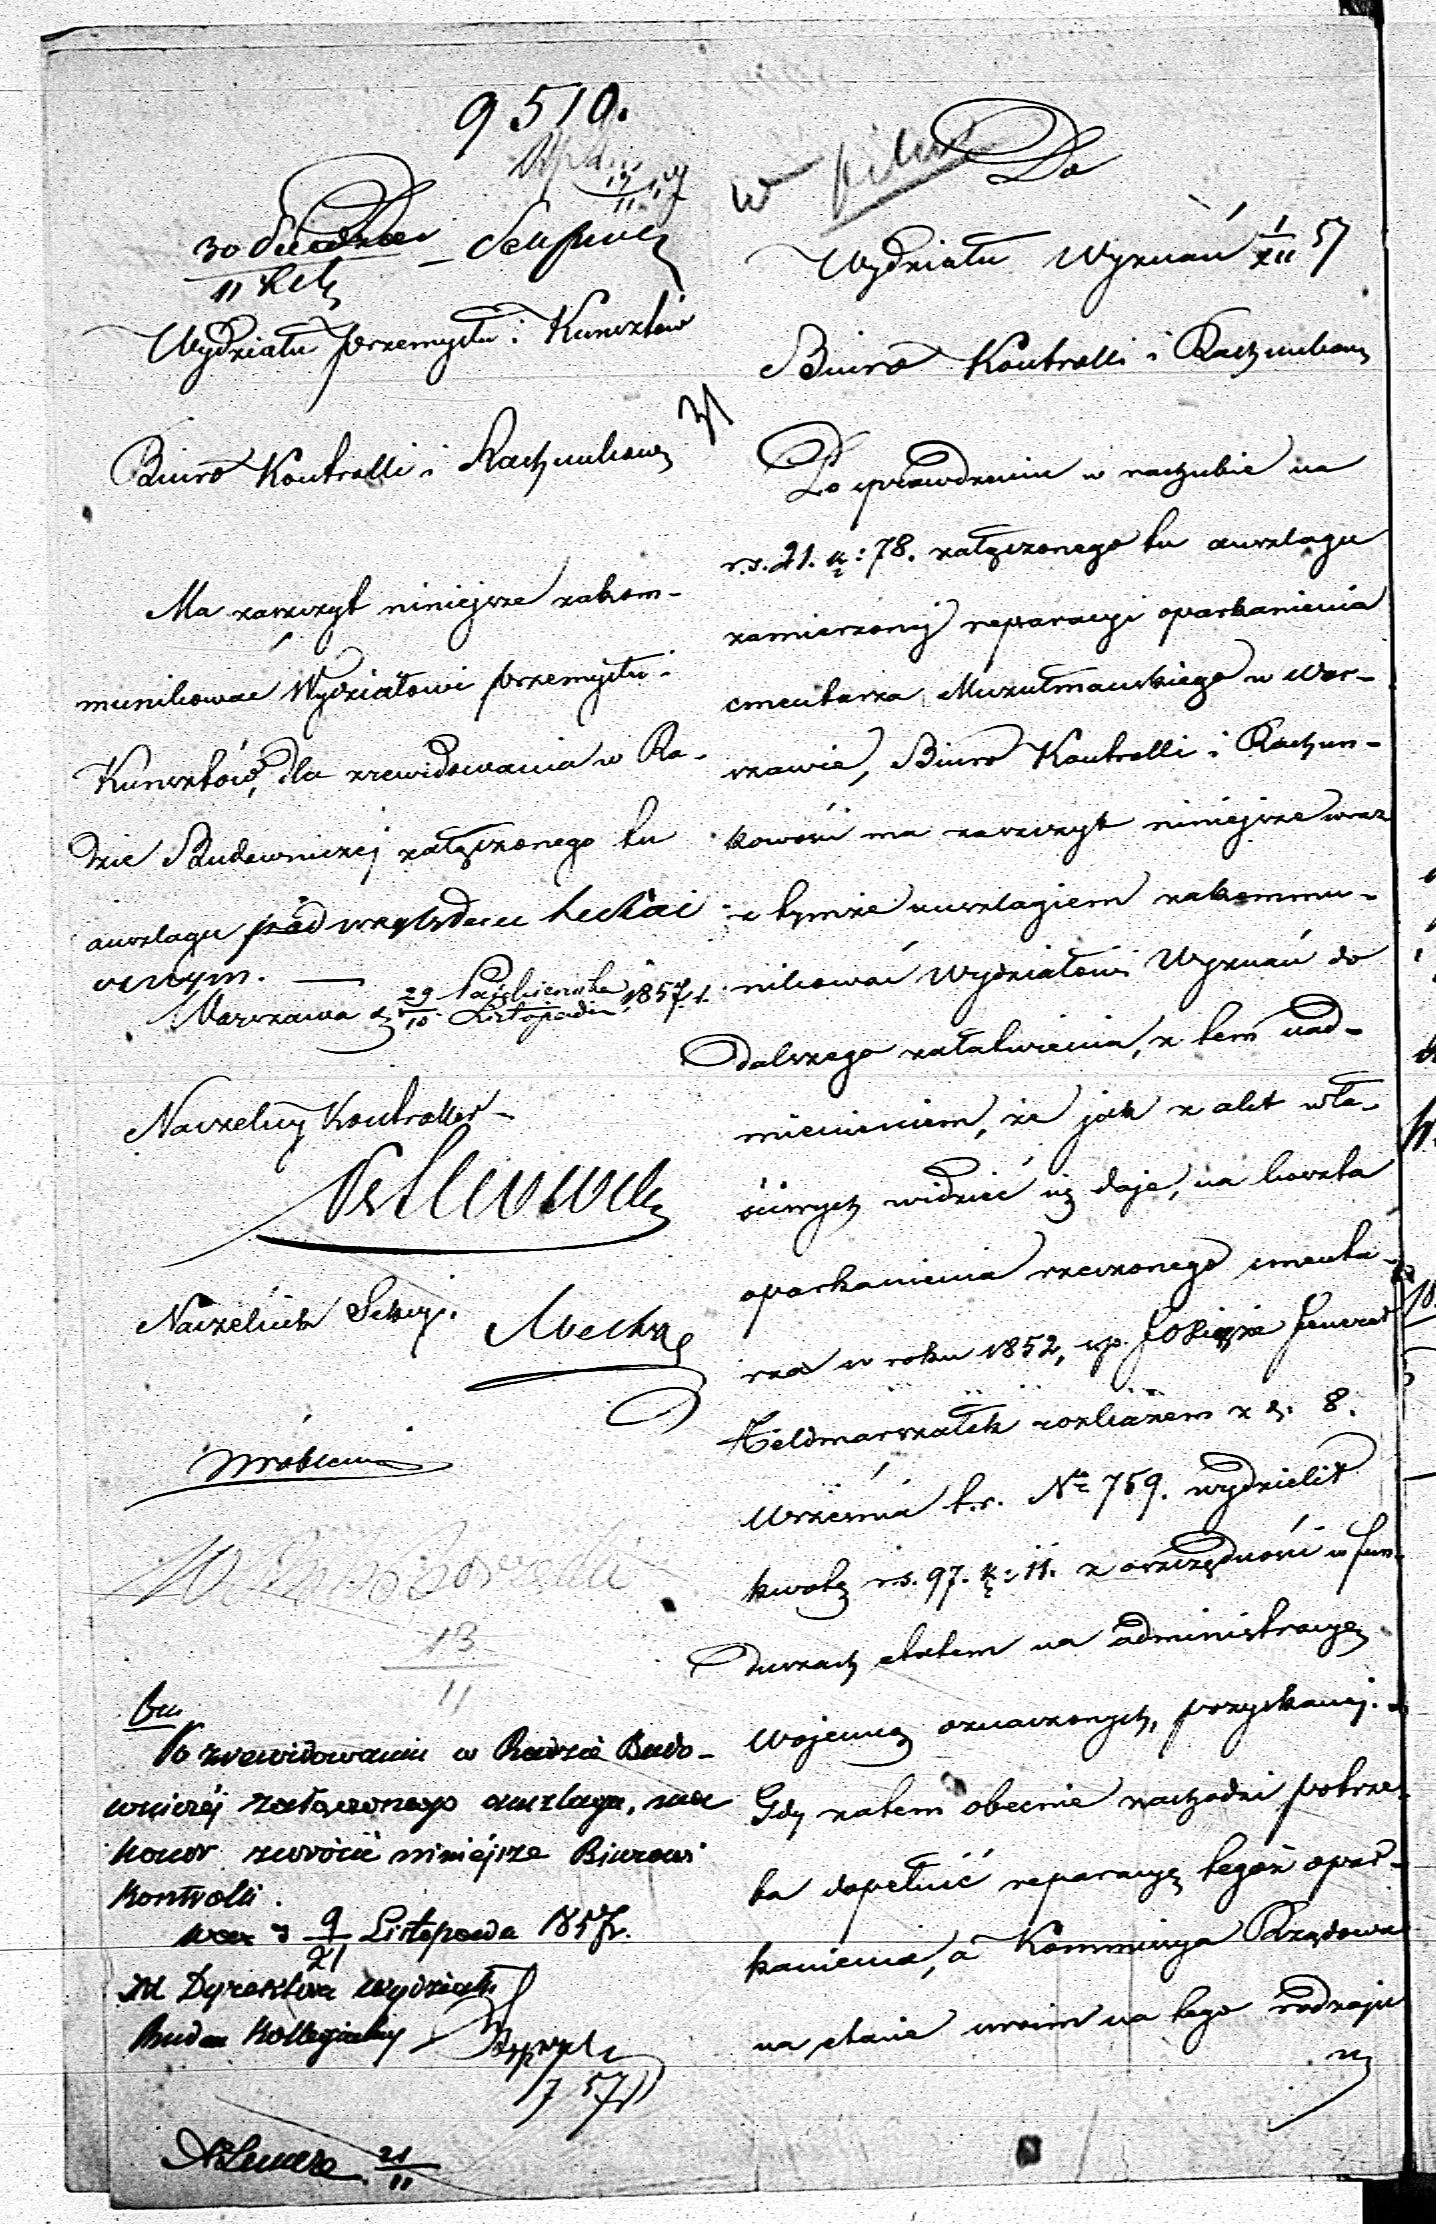 9510.
Do
Wydziału Przemysłu i Kunsztów
Biuro Kontrolli i Rachunkow.
Ma zaszczyt niniejsze zakom-
munikować Wydziałowi Przemysłu i
Kunsztów, dla zrewidowania w Ra-
dzie Budowniczej załączonego tu
anszlagu pod względem techni
cznym. —
Warszawa d. 29 Października / 10 Listopada 1857 r.
Naczelny Kontroller
Naczelnik Sekcyi
13/11
Po zrewidowaniu w Radzie Budo-
wniczej załączonego anszlagu, ma
honor zwrócić niniejsze Biurowi
Kontrolli.
War d 9/21 Listopada 1857 r.
Dyrektora Wydziału
Budow Kollegialny
21/11
w
Do
Wydziału Wyznań 1/XII 57
Biuro Kontrolli i Rachunkow.
Po sprawdzeniu w rachubie na
r.s. 21. k: 78. załączonego tu anszlagu
zamierzonej reparacyi oparkanienia
cmentarza Muzułmańskiego w War-
szawie, Biuro Kontrolli i Rachun-
kowości ma zaszczyt niniejsze wraz
z tymże anszlagiem zakommu-
nikować Wydziałowi Wyznań do
dalszego załatwienia, z tem nad-
mienieniem, że jak z akt wła-
ściwych widzieć się daje, na koszta
oparkanienia rzeczonego cmenta-
rza w roku 1852, JO Xiąże Jenerał
Feldmarszałek rozkazem z d. 8.
Września t.r. Nº 759. wydzielił
kwotę r.s. 97. k: 11. z oszczędności w fun-
duszach etatem na administracyę
Wojenną oznaczonych, pozyskanej.
Gdy zatem obecnie zachodzi potrze-
ba dopełnić reparacyę tegoż opar-
kanienia, a Kommissya Rządowa
na etacie swoim na tego rodzaju